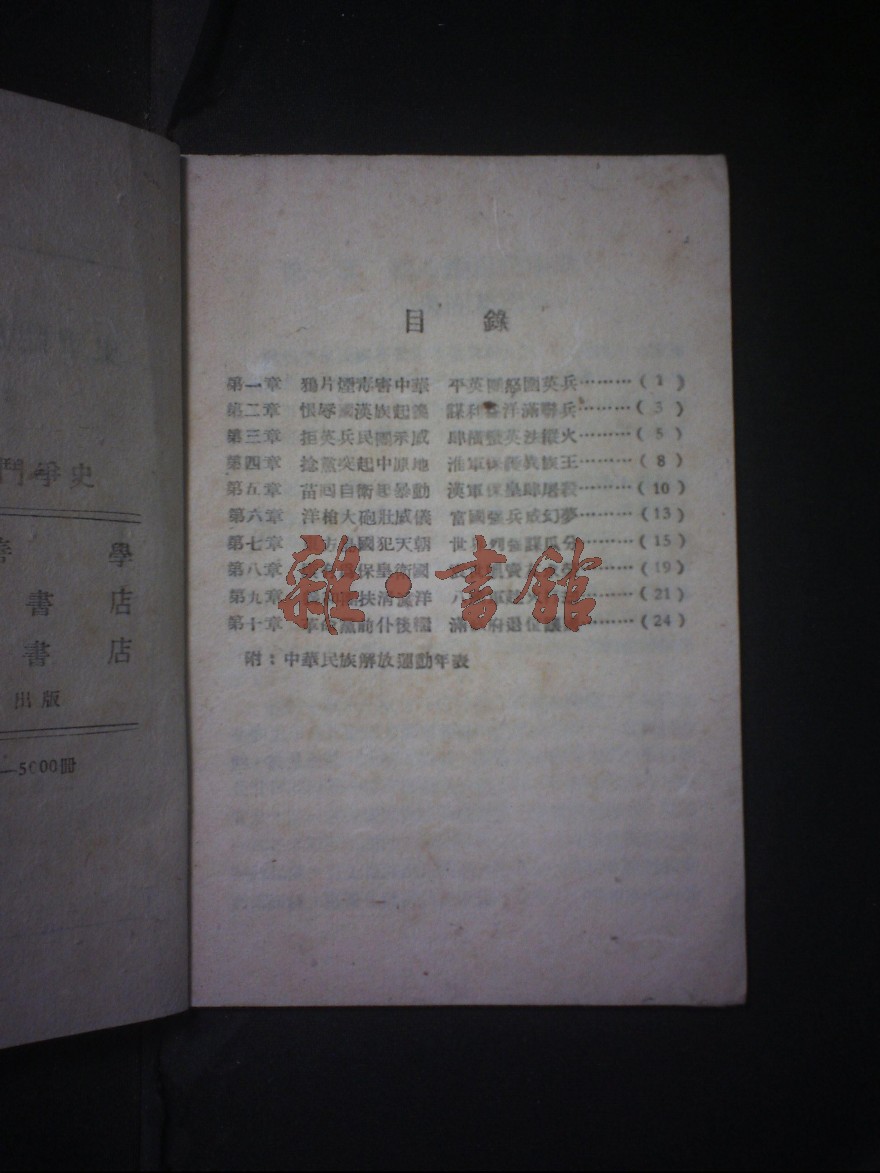 目錄
第一章 鴉片煙毒害中華 平英團怒圍英兵………(1)
第二章 恨辱國漢族起義 謀利益洋滿聯兵………(3)
第三章 拒英兵民團示威 肆橫蠻英法縱火………(5)
第四章 捻黨突起中原地 淮軍保衛異族王………(8)
第五章 苗回自衛起暴動 漢軍保皇肆屠殺………(10)
第六章 洋槍大砲壯威儀 富國强兵成幻夢………(13)
第七章 國犯天朝 世界列强謀瓜分………(15)
第八章 保皇衛國………(19)
第九章 扶清滅洋………(21)
第十章 革命黨前仆後繼 滿 府退位讓………(24)
附：中華民族解放運動年表
鬥爭史
學
書店
書店
出版
—5000冊
雜·書館